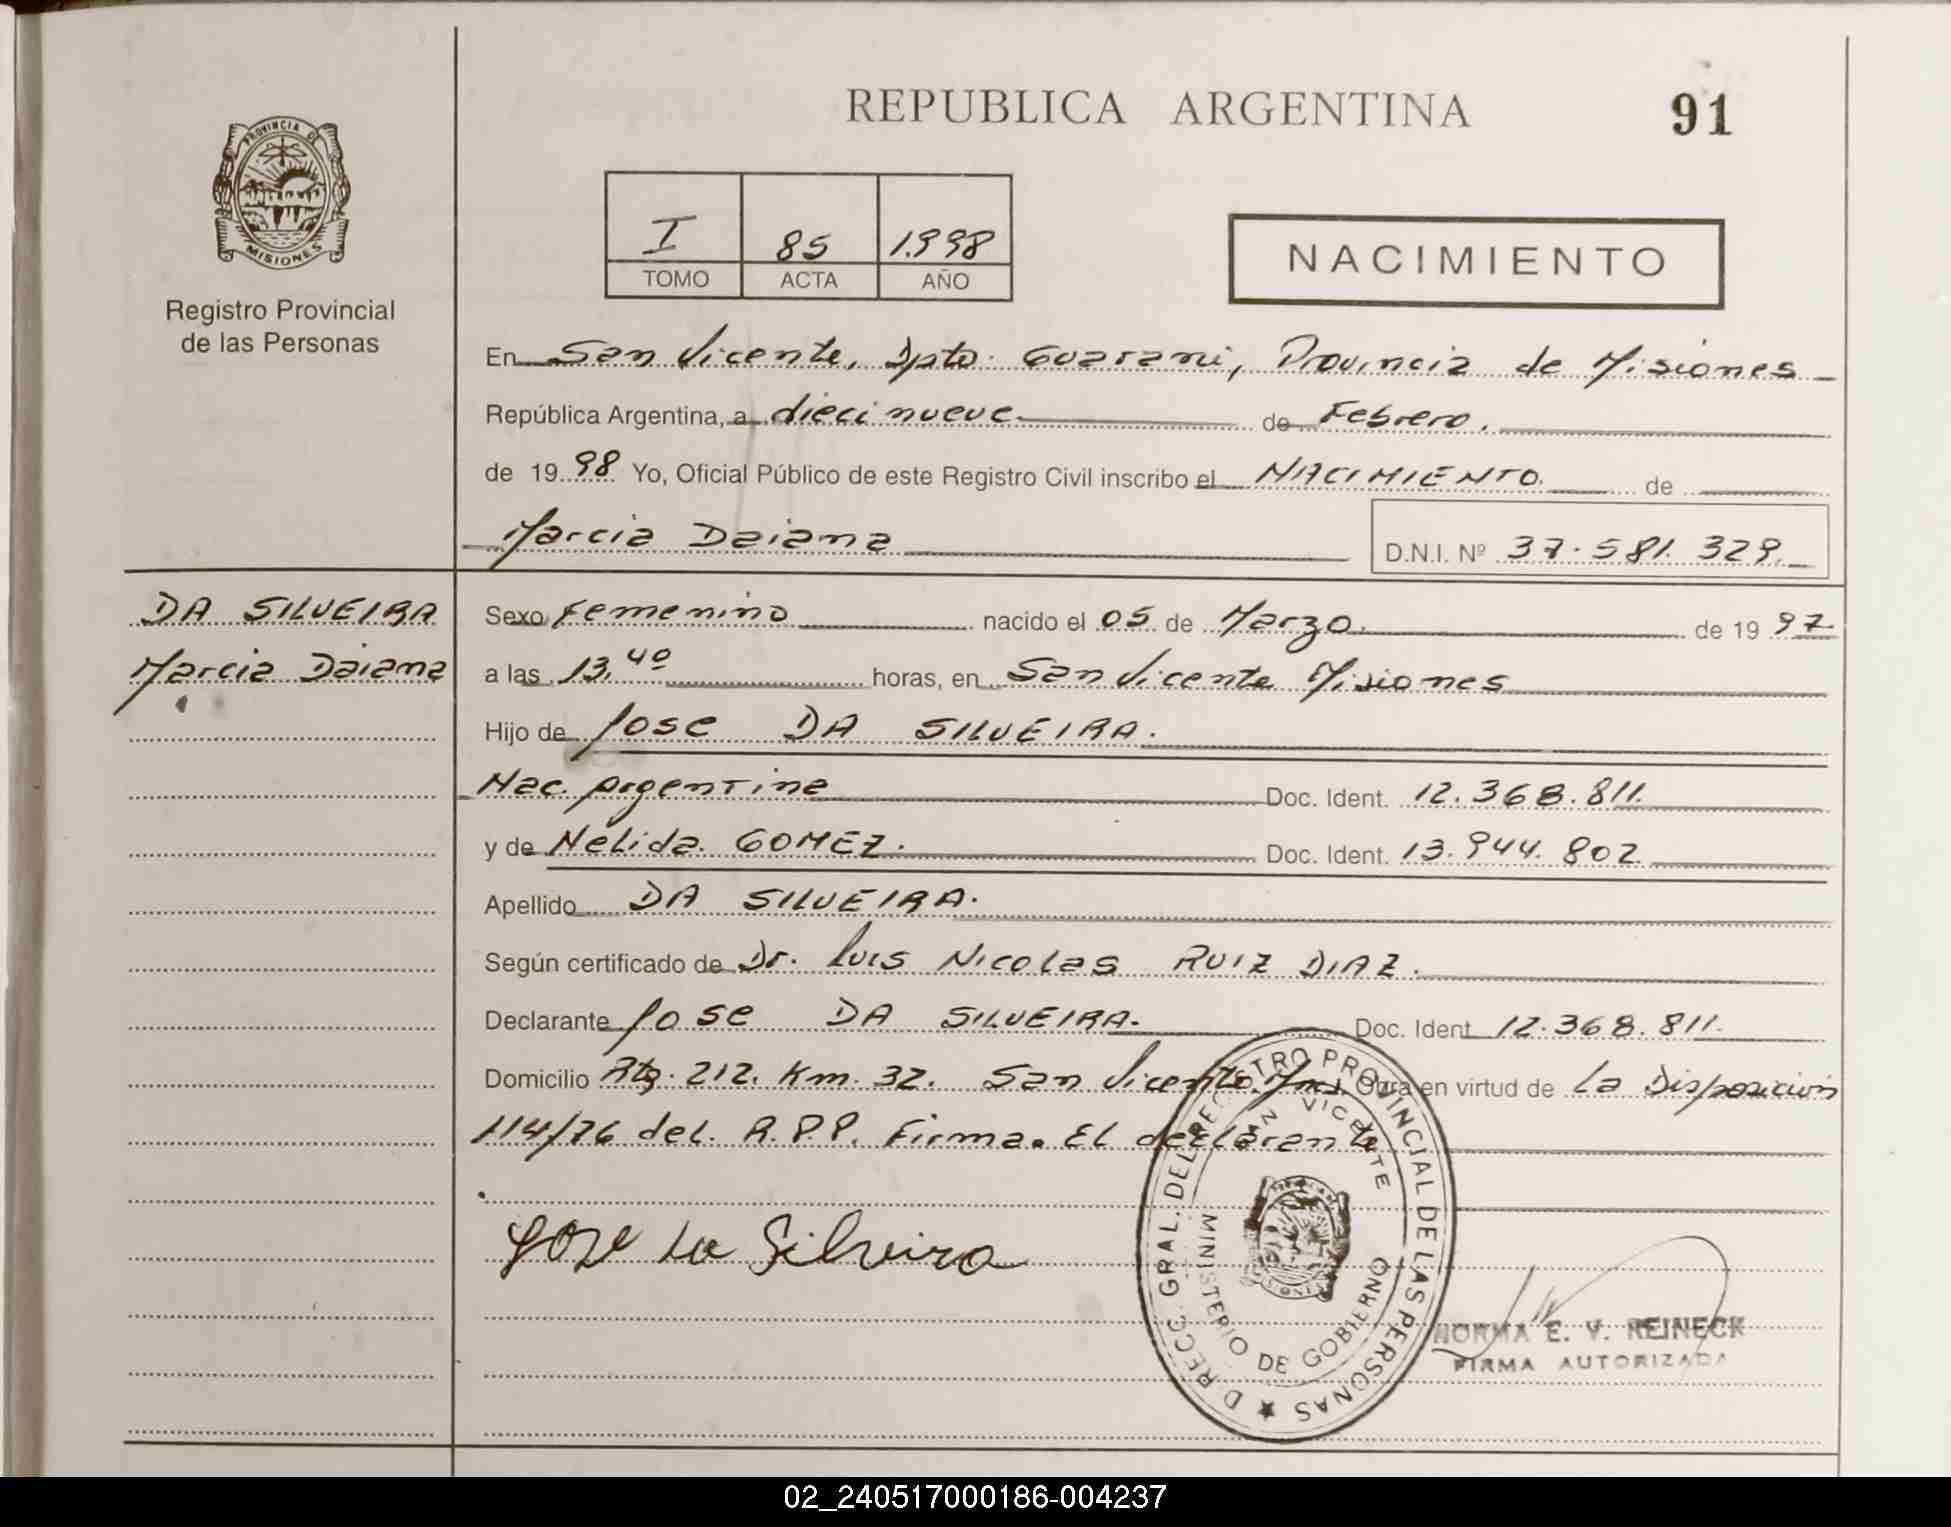 REPUBLICA ARGENTINA
91
PROVINCIA DE
MISIONES
Registro Provincial
de las Personas
I 85 1.998
TOMO ACTA AÑO
NACIMIENTO
En San Vicente, Dpto. Guarani, Provincia de Misiones
República Argentina, a diecinueve de Febrero.
de 19 98 Yo, Oficial Público de este Registro Civil inscribo el NACIMIENTO. de
Marcia Daiana
D.N.I. Nº 37.581.329.
DA SILVEIRA
Marcia Daiana
Sexo Femenino nacido el 05 de Marzo. de 19 97.
a las 13,40 horas, en San Vicente Misiones
Hijo de Jose DA SILVEIRA.
Nac. Argentina Doc. Ident. 12.368.811.
y de Nelida GOMEZ. Doc. Ident. 13.944.802
Apellido DA SILVEIRA.
Según certificado de Dr. Luis Nicolas RUIZ DIAZ.
Declarante Jose DA SILVEIRA. Doc. Ident 12.368.811.
Domicilio Rta. 212. Km. 32. San Vicente. Mnes. Obra en virtud de La Disposición
114/76 del. R.P.P. Firma. El declarante
Jose Da Silveira
DIRECC. GRAL. DEL REGISTRO PROVINCIAL DE LAS PERSONAS
SAN VICENTE
MINISTERIO DE GOBIERNO
NORMA E. V. REINECK
FIRMA AUTORIZADA
02_240517000186-004237